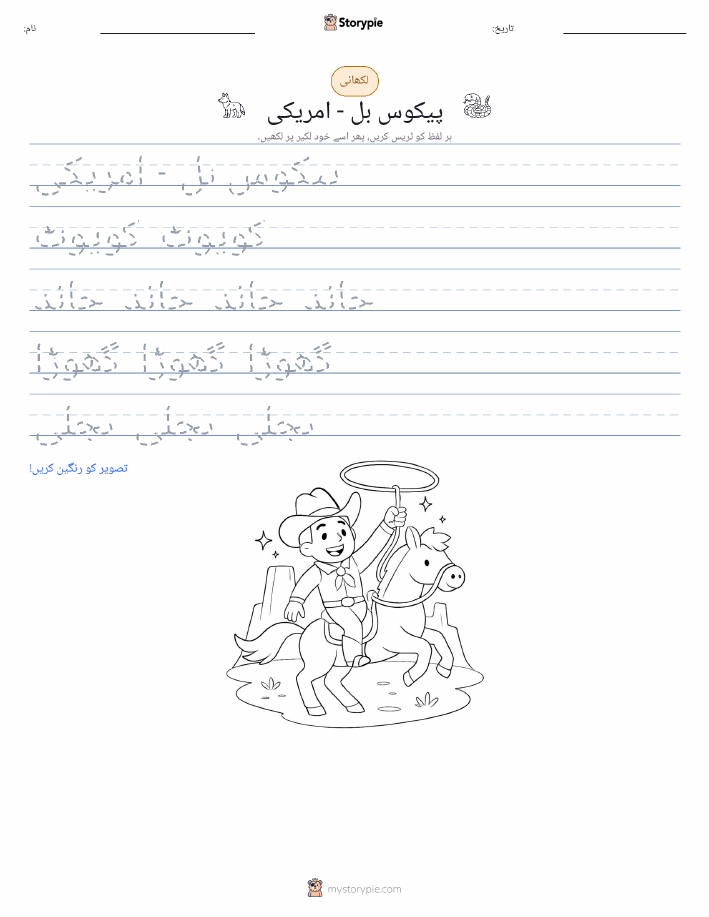 نام:
Storypie
تاریخ:
لکھائی
پیکوس بل - امریکی
ہر لفظ کو ٹریس کریں، پھر اسے خود لکیر پر لکھیں۔
پیکوس بل - امریکی
کویوٹ کویوٹ
گھوڑا گھوڑا گھوڑا
بجلی بجلی بجلی
تصویر کو رنگین کریں!
mystorypie.com